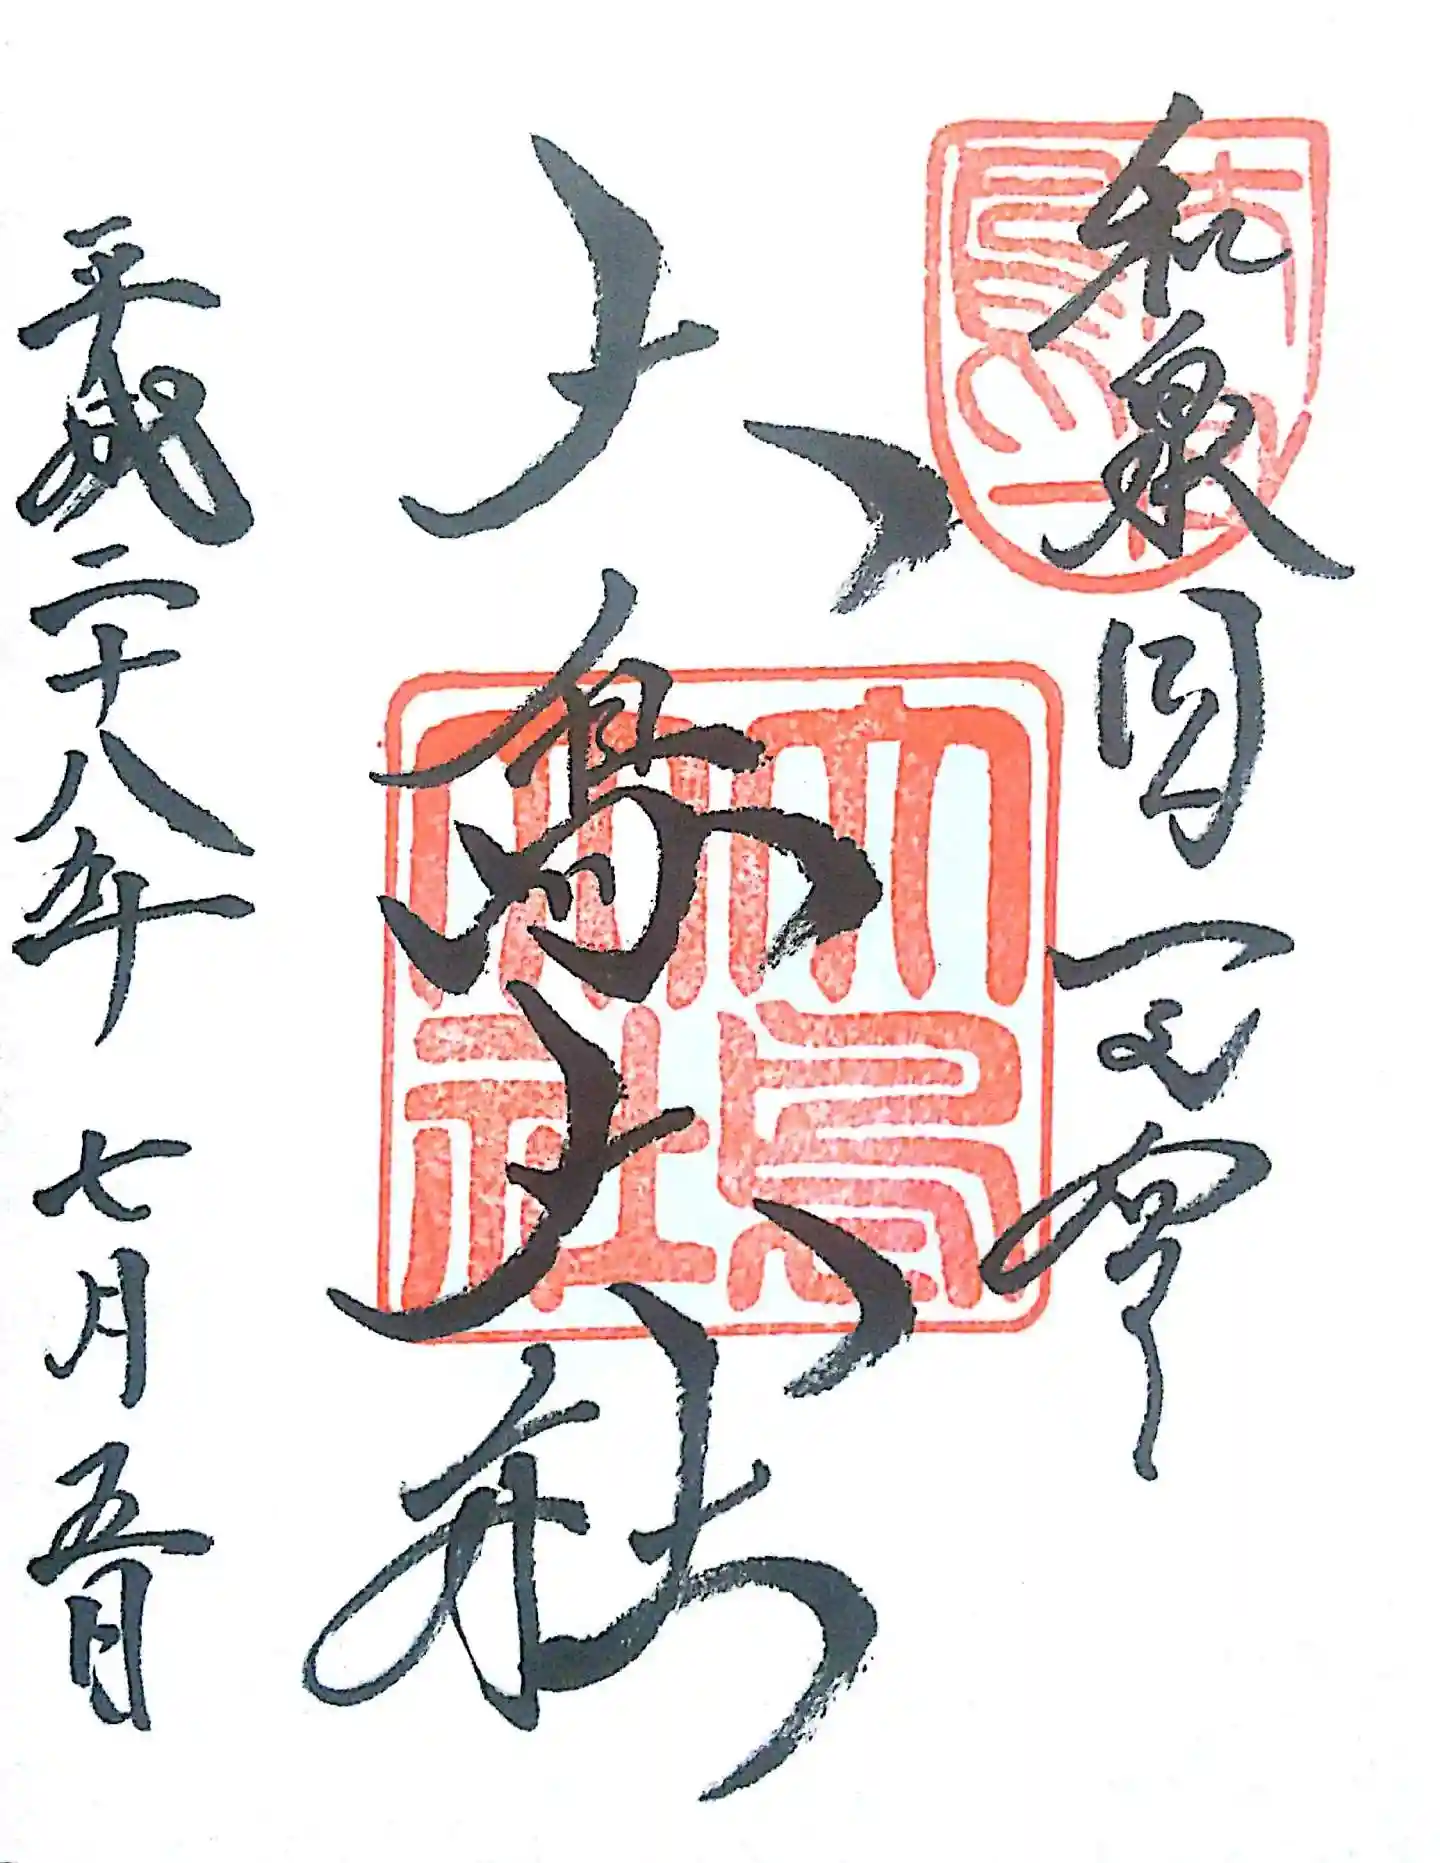 和泉国一之宮
大鳥大社
平成二十八年 七月 五日
大鳥大社